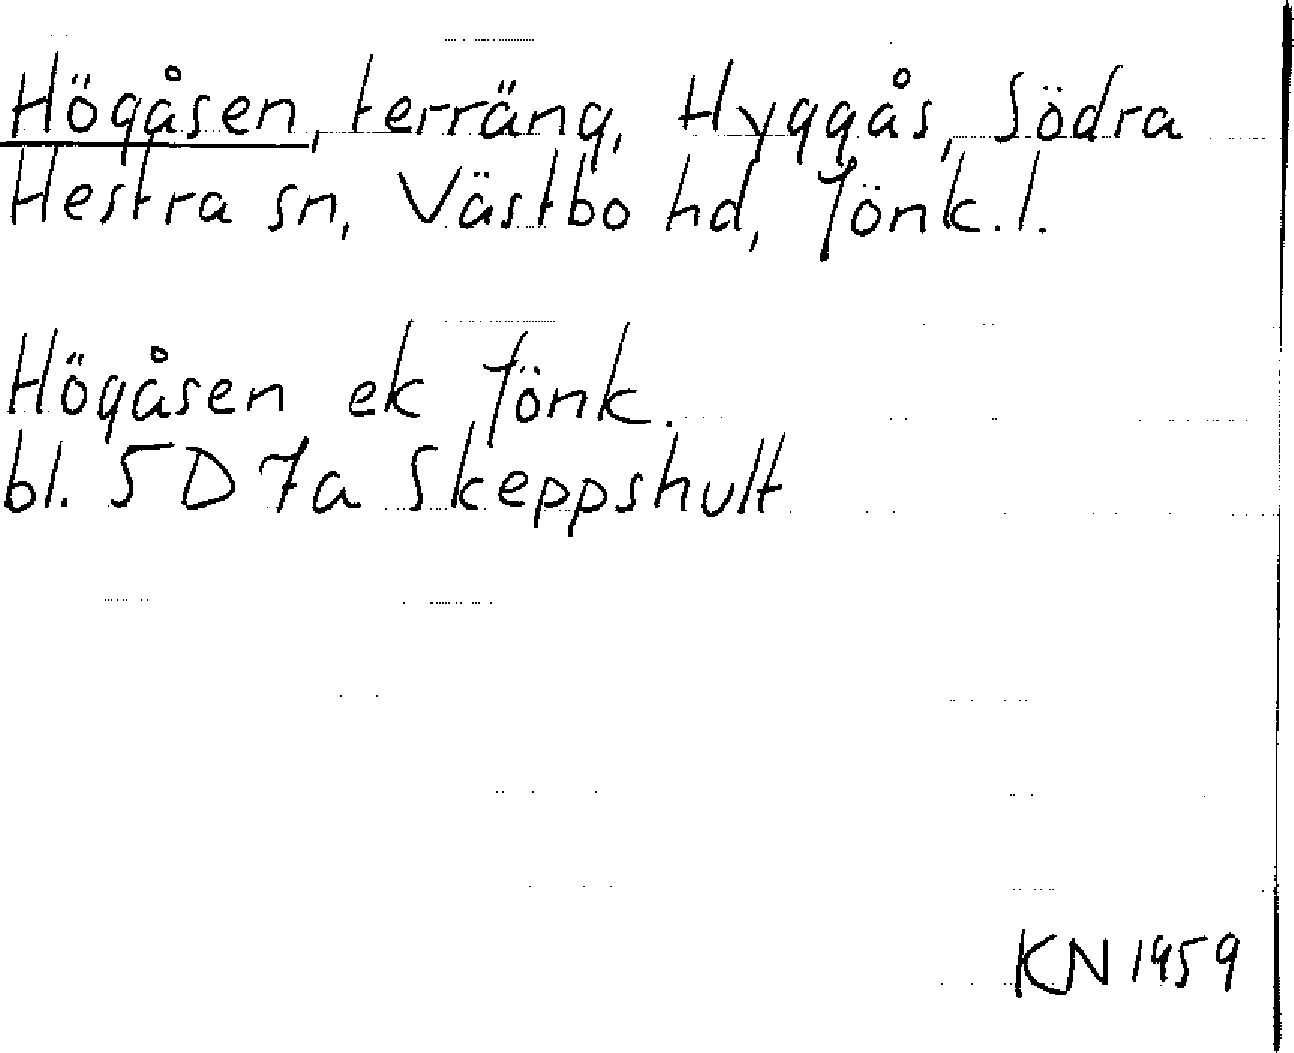 Högåsen, terräng, Hyggås, Södra
Hestra sn, Västbo hd, Jönk. l.
Högåsen ek Jönk.
bl. 5D 7a Skeppshult
KN 1959